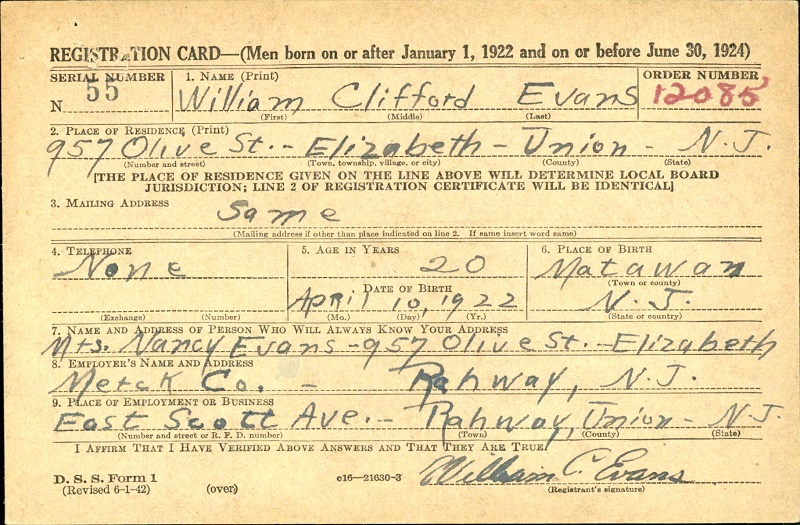 REGISTRATION CARD—(Men born on or after January 1, 1922 and on or before June 30, 1924)
SERIAL NUMBER 1. NAME (Print) ORDER NUMBER
N 55 William Clifford Evans 12085
(First) (Middle) (Last)
2. PLACE OF RESIDENCE (Print)
957 Olive St. - Elizabeth - Union - N.J.
(Number and street) (Town, township, village, or city) (County) (State)
[THE PLACE OF RESIDENCE GIVEN ON THE LINE ABOVE WILL DETERMINE LOCAL BOARD
JURISDICTION; LINE 2 OF REGISTRATION CERTIFICATE WILL BE IDENTICAL]
3. MAILING ADDRESS
Same
(Mailing address if other than place indicated on line 2. If same insert word same)
4. TELEPHONE 5. AGE IN YEARS 6. PLACE OF BIRTH
None 20 Matawan
(Town or county)
DATE OF BIRTH
April 10, 1922 N.J.
(Exchange) (Number) (Mo.) (Day) (Yr.) (State or country)
7. NAME AND ADDRESS OF PERSON WHO WILL ALWAYS KNOW YOUR ADDRESS
Mrs. Nancy Evans - 957 Olive St. - Elizabeth
8. EMPLOYER'S NAME AND ADDRESS
Merck Co. - Rahway, N.J.
9. PLACE OF EMPLOYMENT OR BUSINESS
East Scott Ave. - Rahway, Union - N.J.
(Number and street or R. F. D. number) (Town) (County) (State)
I AFFIRM THAT I HAVE VERIFIED ABOVE ANSWERS AND THAT THEY ARE TRUE.
William C. Evans
D. S. S. Form 1
(Revised 6-1-42) (over) c16—21630-3 (Registrant's signature)